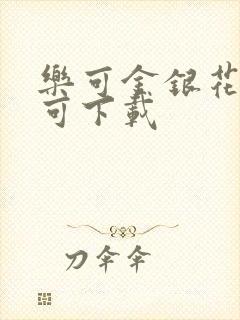 樂可金銀花
可下載
刀伞伞